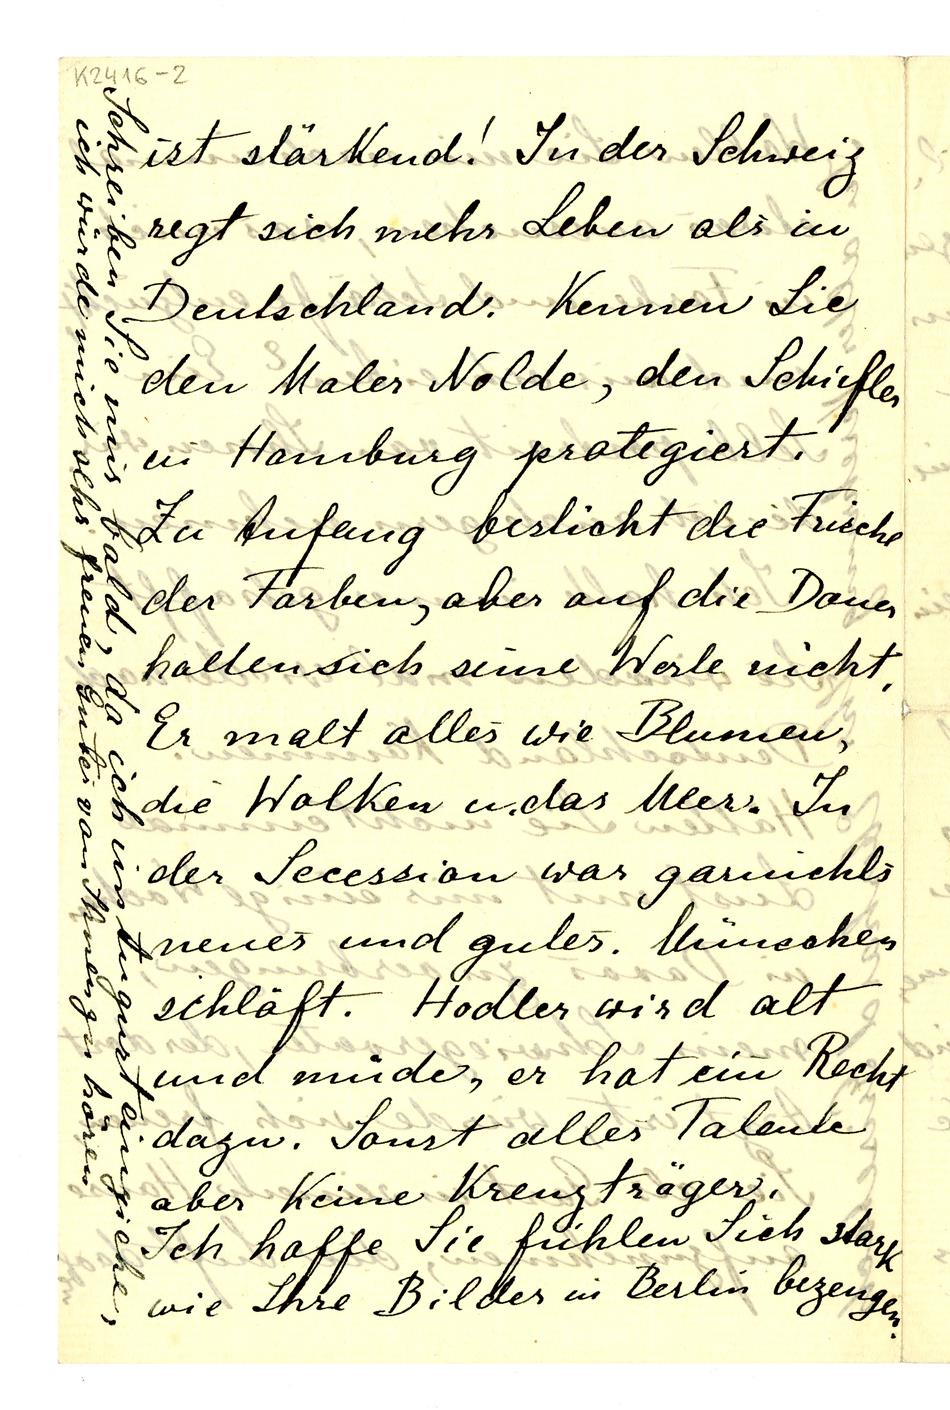 K2416-2
ist stärkend! In der Schweiz
regt sich mehr Leben als in
Deutschland. Kennen Sie
den Maler Nolde, den Schiefler
in Hamburg protegiert.
Zu Anfang besticht die Frische
der Farben, aber auf die Dauer
halten sich seine Werke nicht.
Er malt alles wie Blumen,
die Wolken u. das Meer. In
der Secession war garnichts
neues und gutes. München
schläft. Hodler wird alt
und müde, er hat ein Recht
dazu. Sonst alles Talente
aber Keine Kreuzträger.
Ich hoffe Sie fühlen Sich stark
wie Ihre Bilder in Berlin bezeugen.
Schreiben Sie mir bald, da ich im August einziehe,
ich würde mich sehr freuen Gutes von Ihnen zu hören